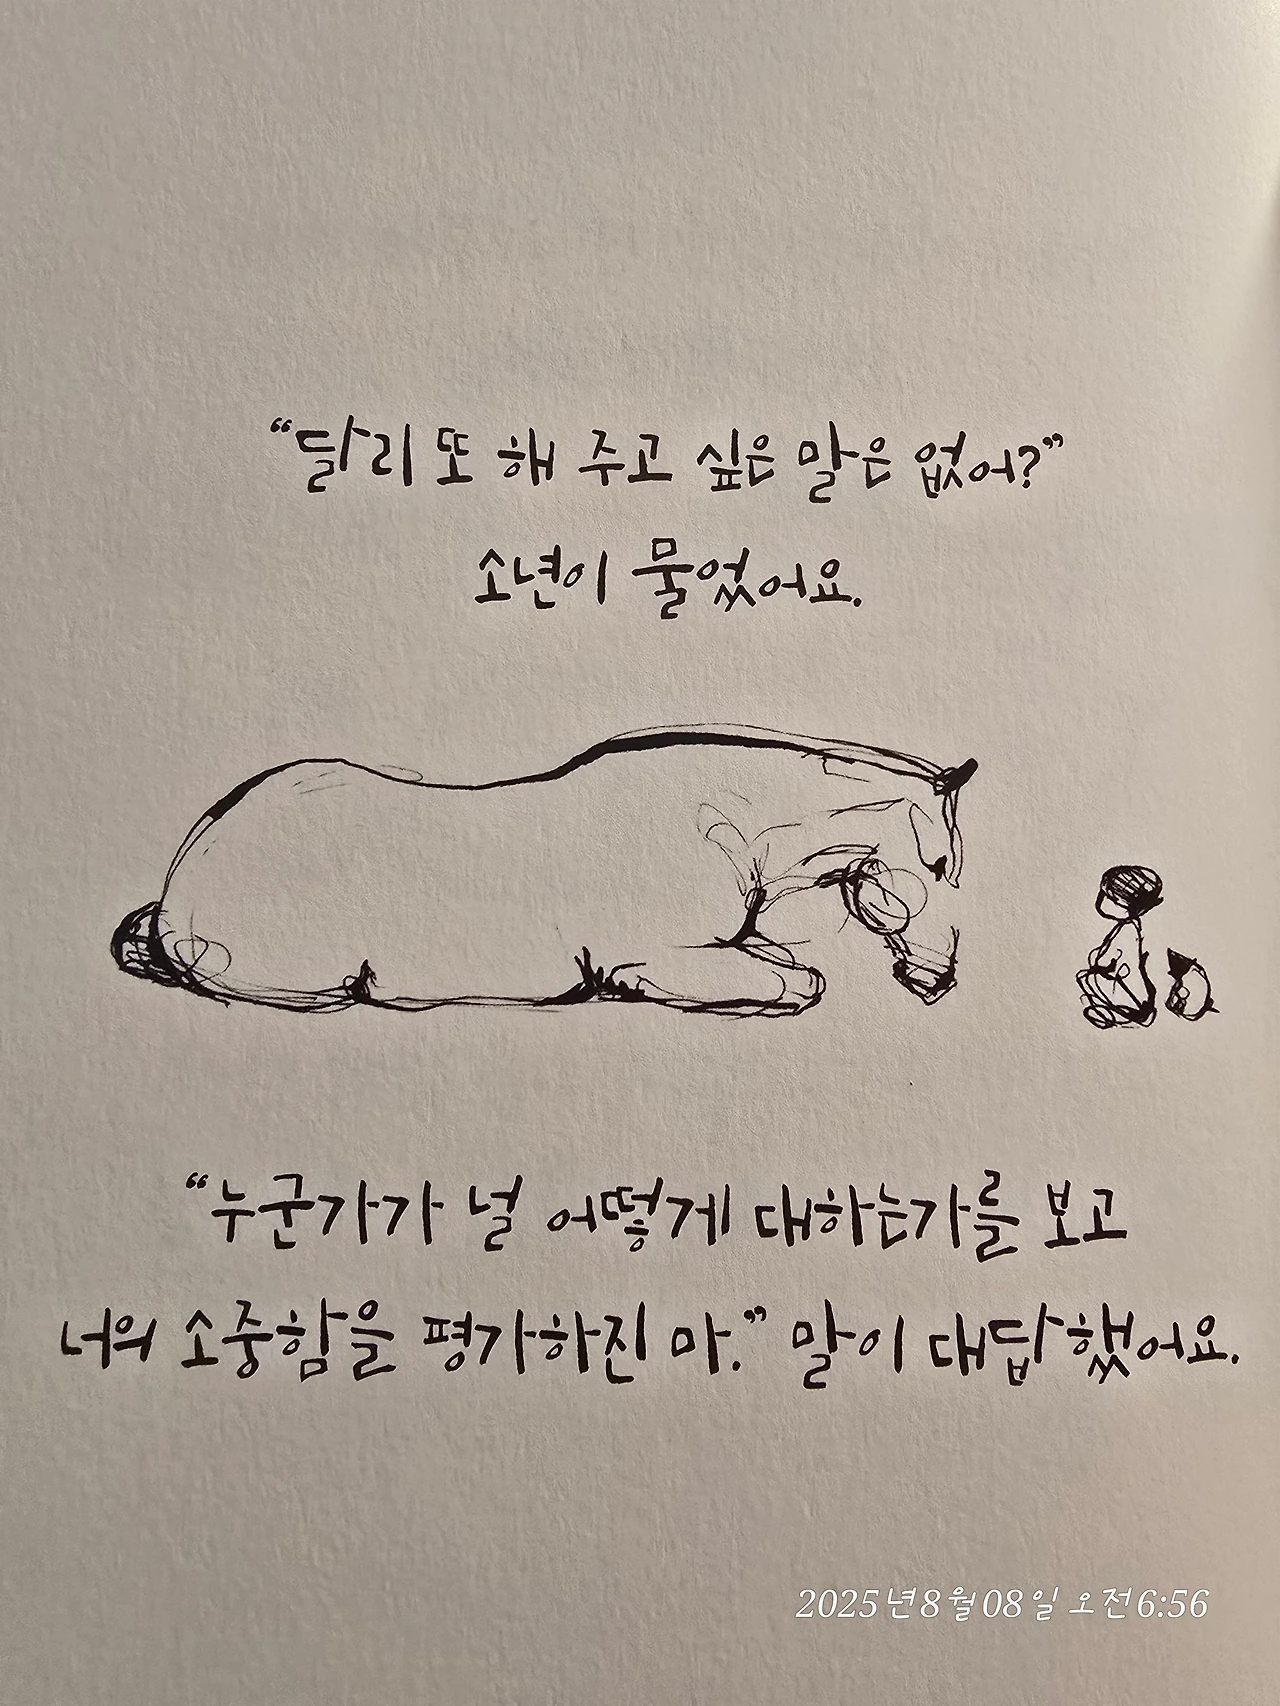 “달리 또 해 주고 싶은 말은 없어?”
소년이 물었어요.
“누군가가 널 어떻게 대하는가를 보고
너의 소중함을 평가하진 마.” 말이 대답했어요.
2025년8월08일 오전6:56